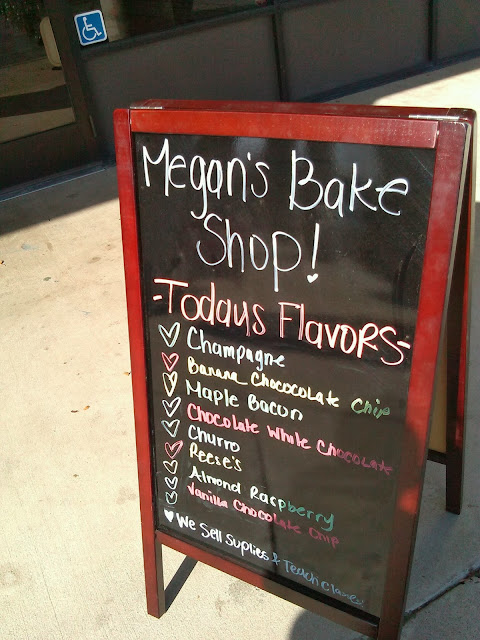 Megan's Bake
Shop!
-Todays Flavors-
Champagne
Banana Chococolate Chip
Maple Bacon
Chocolate White Chocolate
Churro
Reese's
Almond Raspberry
Vanilla Chocolate Chip
We Sell Supplies & Teach